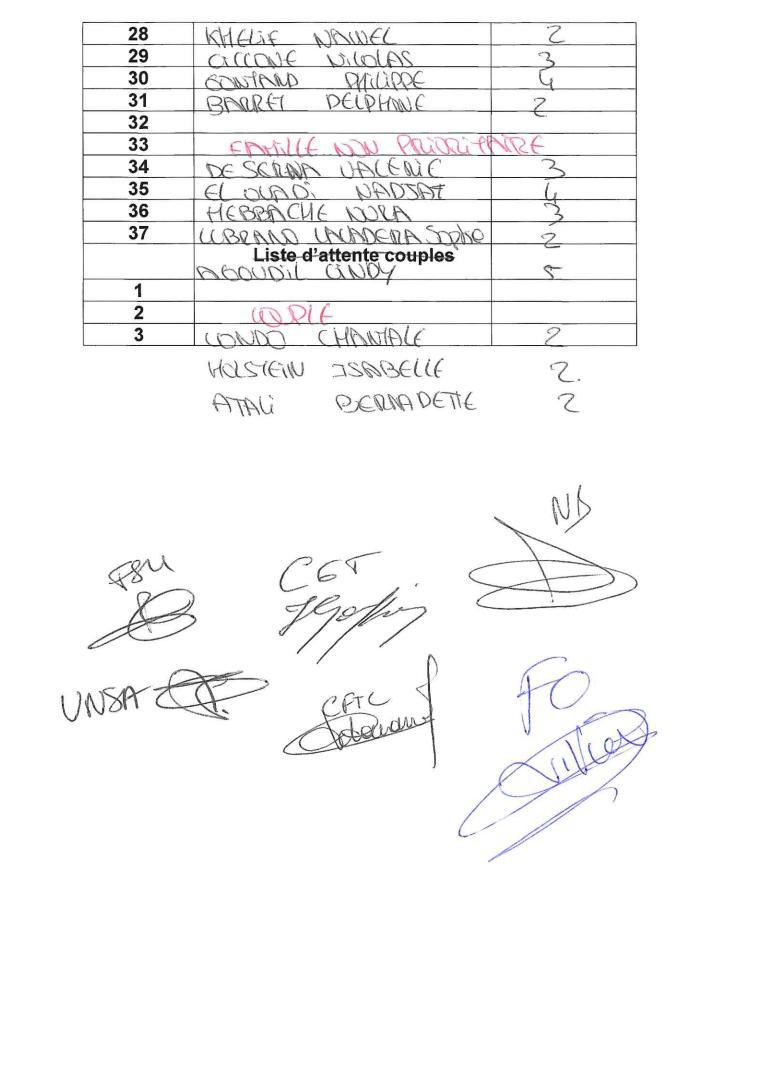 28 KHELIF NAWEL 2
29 CICCONE NICOLAS 3
30 GONTARD PHILIPPE 4
31 BARRET DELPHINE 2
32
33 FAMILLE NON PRIORITAIRE
34 DE SERNA VALERIE 3
35 EL OUADI NADJAT 4
36 HEBBACHE NORA 3
37 LUBRANO LAVADERA Sophie 2
Liste d'attente couples
AGOUDIL CINDY 5
1
2 COUPLE
3 CONDO CHANTALE 2
HOLSTEIN ISABELLE 2.
ATALI BERNADETTE 2
NB
FSU CGT
UNSA CFTC FO